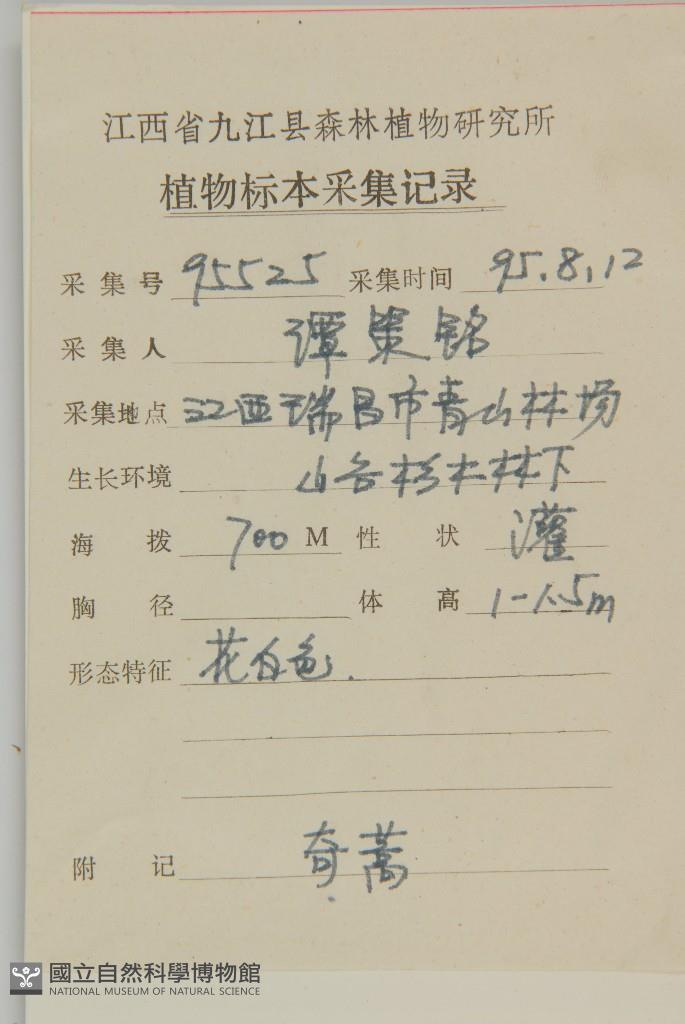 江西省九江县森林植物研究所
植物标本采集记录
采集号 95525 采集时间 95.8.12
采集人 谭策铭
采集地点 江西瑞昌市青山林场
生长环境 山谷杉木林下
海拨 700 M 性状 灌
胸径 体高 1-1.5m
形态特征 花白色.
附记 奇蒿
國立自然科學博物館
NATIONAL MUSEUM OF NATURAL SCIENCE